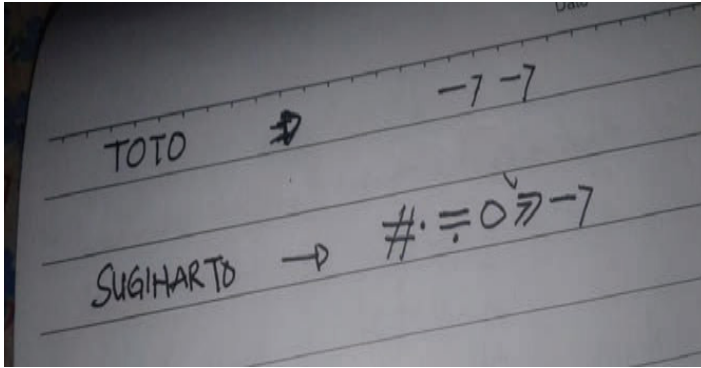 TOTO ⇒ -7 -7
SUGIHARTO → #·≑Oˇ⩾-7